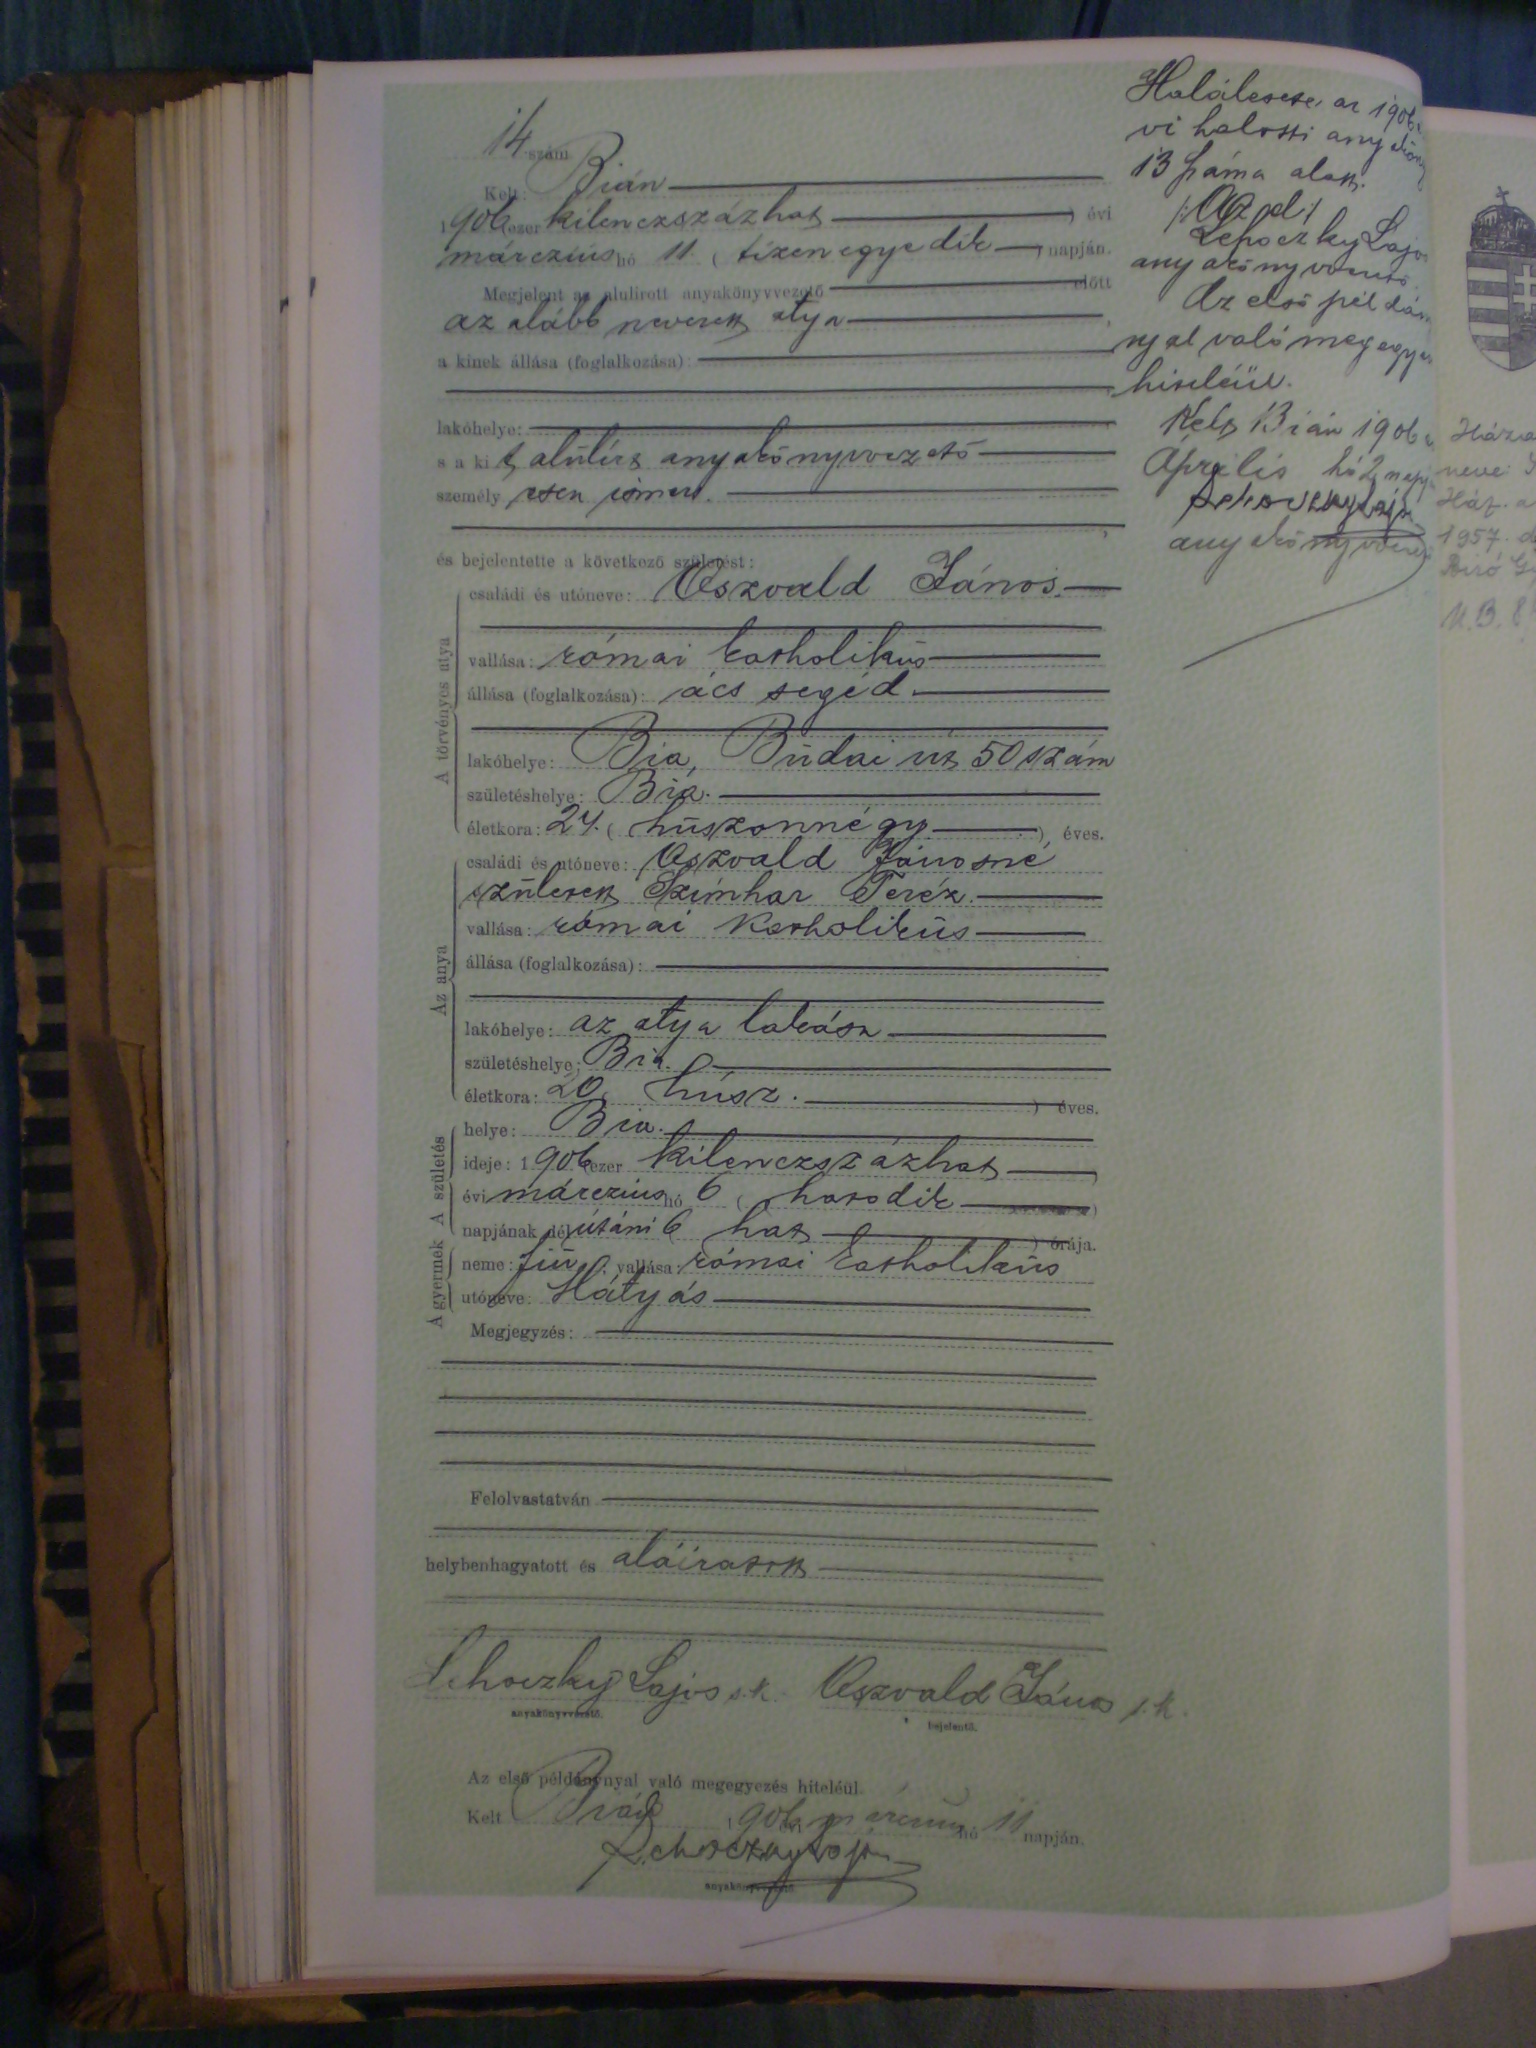 14 szám
Kelt: Bián
1906 (ezer kilenczszázhat) évi
márczius hó 11. (tizenegyedik) napján.
Megjelent az alulirott anyakönyvvezető előtt
az alább nevezett atya
a kinek állása (foglalkozása):
lakóhelye:
s a kit alúlírt anyakönyvvezető
személyesen ismer.
és bejelentette a következő születést:
A törvényes atya
családi és utóneve: Oszvald János.
vallása: római katholikus
állása (foglalkozása): ács segéd.
lakóhelye: Bia, Budai út 50 szám
születéshelye: Bia.
életkora: 24. (huszonnégy) éves.
Az anya
családi és utóneve: Oszvald Jánosné
született Szimhar Teréz.
vallása: római katholikus
állása (foglalkozása):
lakóhelye: az atya lakása
születéshelye: Bia.
életkora: 20 húsz. ) éves.
A születés
helye: Bia.
ideje: 1906 (ezer kilenczszázhat)
évi márczius hó 6 (hatodik)
napjának délutáni 6 hat ) órája.
A gyermek
neme: fiú, vallása: római katholikus
utóneve: Mátyás
Megjegyzés:
Felolvastatván
helybenhagyatott és aláiratott
Lehoczky Lajos s.k. Oszvald János s.k.
anyakönyvvezető. bejelentő.
Az első példánynyal való megegyezés hiteléül.
Kelt Bián 1906 évi márczius hó 11 napján.
Lehoczky Lajos
anyakönyvvezető.
Halálesete az 1906
vi halotti anyakönyv
13 száma alatt.
/:Olv. al:/
Lehoczky Lajos
anyakönyvvezető
Az első példány
nyal való megegyezés
hiteléül.
Kelt Bián 1906
Április hó 2 napj
Lehoczky Lajos
anyakönyvvezető
Háza
neve:
Ház. a
1957. d
Biró
U.B. 8